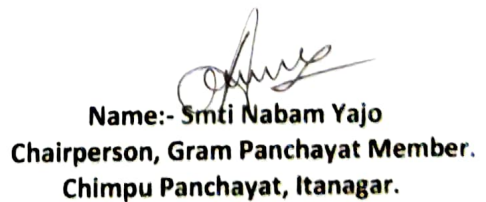 Name:- Smti Nabam Yajo
Chairperson, Gram Panchayat Member.
Chimpu Panchayat, Itanagar.